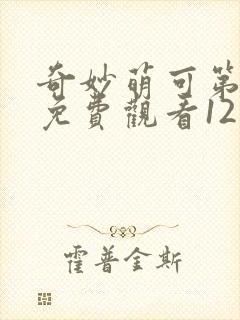 奇妙萌可第
免費觀看12
霍普金斯